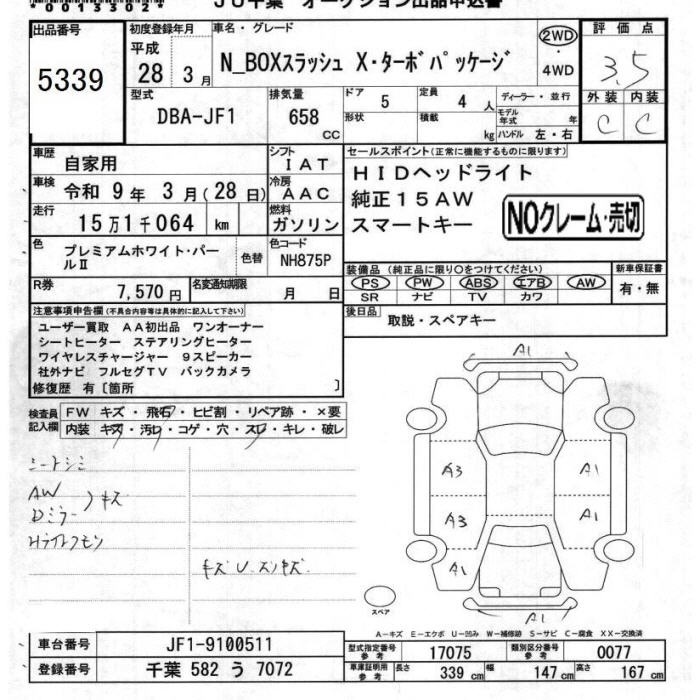 *0013302*
JU千葉 オークション出品申込書
出品番号
5339
初度登録年月
平成
28 3月
車名・グレード
N_BOXスラッシュ X・ターボパッケージ
2WD
・
4WD
評価点
3.5
外装 内装
C C
型式
DBA-JF1
排気量
658
CC
ドア 5
定員 4 人
ディーラー・並行
形状
積載 kg
モデル年式 年
ハンドル 左・右
車歴 自家用
シフト IAT
車検 令和 9年 3月(28日)
冷房 AAC
走行 15万1千064 km
燃料 ガソリン
色 プレミアムホワイト・パールⅡ
色替
色コード NH875P
R券 7,570円
名変通知期限 月 日
セールスポイント(正常に機能するものに限ります)
HIDヘッドライト
純正15AW
スマートキー
NOクレーム・売切
装備品(純正品に限り○をつけてください)
PS PW ABS エアB AW
SR ナビ TV カワ
新車保証書
有・無
後日品 取説・スペアキー
注意事項申告欄(不具合内容等は具体的に記入して下さい)
ユーザー買取 AA初出品 ワンオーナー
シートヒーター ステアリングヒーター
ワイヤレスチャージャー 9スピーカー
社外ナビ フルセグTV バックカメラ
修復歴 有〔箇所 〕
検査員記入欄
FW キズ・飛石・ヒビ割・リペア跡・×要
内装 キズ・汚レ・コゲ・穴・スレ・キレ・破レ
シートシミ
AW
Dミラー
キズ
Hライトクモリ
キズ U.スリキズ
A1
A3 A1
A3 A1
A1
A1
スペア
A-キズ E-エクボ U-凹み W-補修跡 S-サビ C-腐食 XX-交換済
車台番号 JF1-9100511
登録番号 千葉 582 う 7072
型式指定番号 参考 17075
類別区分番号 参考 0077
車庫証明用 参考 長さ 339 cm 幅 147 cm 高さ 167 cm